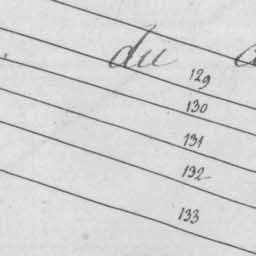 du
129
130
131
132
133